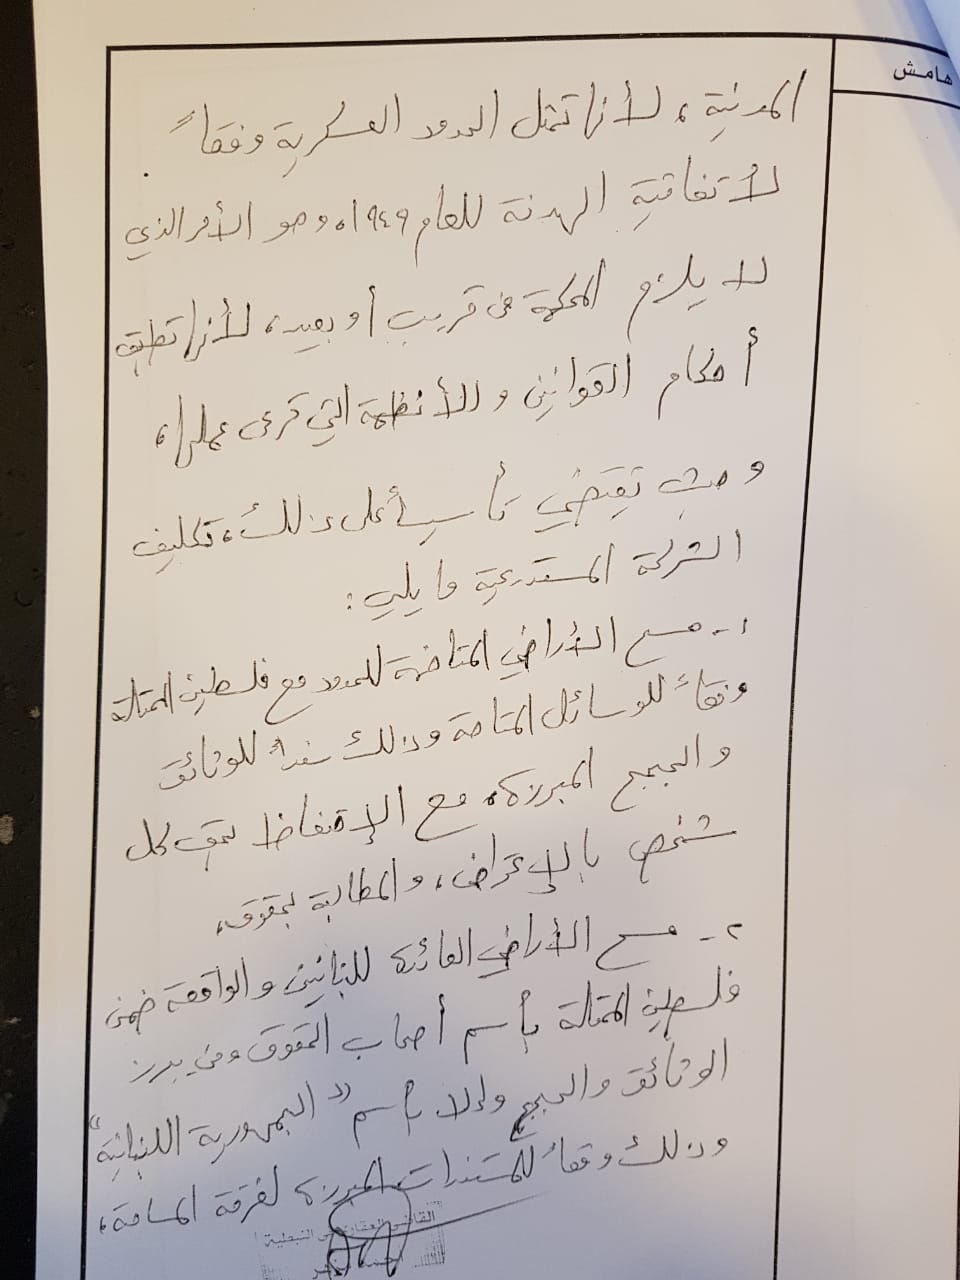 هامش
المدنية، لأنها تمثل الحدود العسكرية وفقاً
لاتفاقية الهدنة للعام ١٩٤٩، وهو الأمر الذي
لا يلزم المحكمة من قريب أو بعيد، لأنها تطبق
أحكام القوانين والأنظمة التي ترعى عملها،
وحيث تقتضي تأسيساً على ذلك، تكليف
الشركة المستدعية ما يلي:
١- مسح الأراضي المتاخمة للحدود مع فلسطين المحتلة
وفقاً للوسائل المتاحة وذلك سنداً للوثائق
والحجج المبرزة، مع الإحتفاظ بحق كل
شخص بالإعتراض، والمطالبة بحقوقه،
٢- مسح الأراضي العائدة للبنانيين والواقعة ضمن
فلسطين المحتلة بإسم أصحاب الحقوق ومن يبرز
الوثائق والحجج وإلا بإسم "الجمهورية اللبنانية"
وذلك وفقاً للمستندات المبرزة لفرقة المساحة،
القاضي العقاري في النبطية